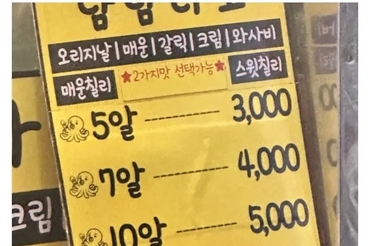 오리지날 | 매운 | 갈릭 | 크림 | 와사비
매운칠리 ★2가지맛 선택가능★ 스윗칠리
5알 3,000
7알 4,000
10알 5,000
크림